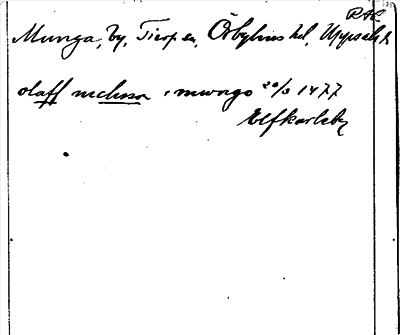 RAP.
Munga, by, Tierp sn, Örbyhus hd, Uppsala l.
olaff niclisson i mwngo 20/3 1477
Elfkarleby